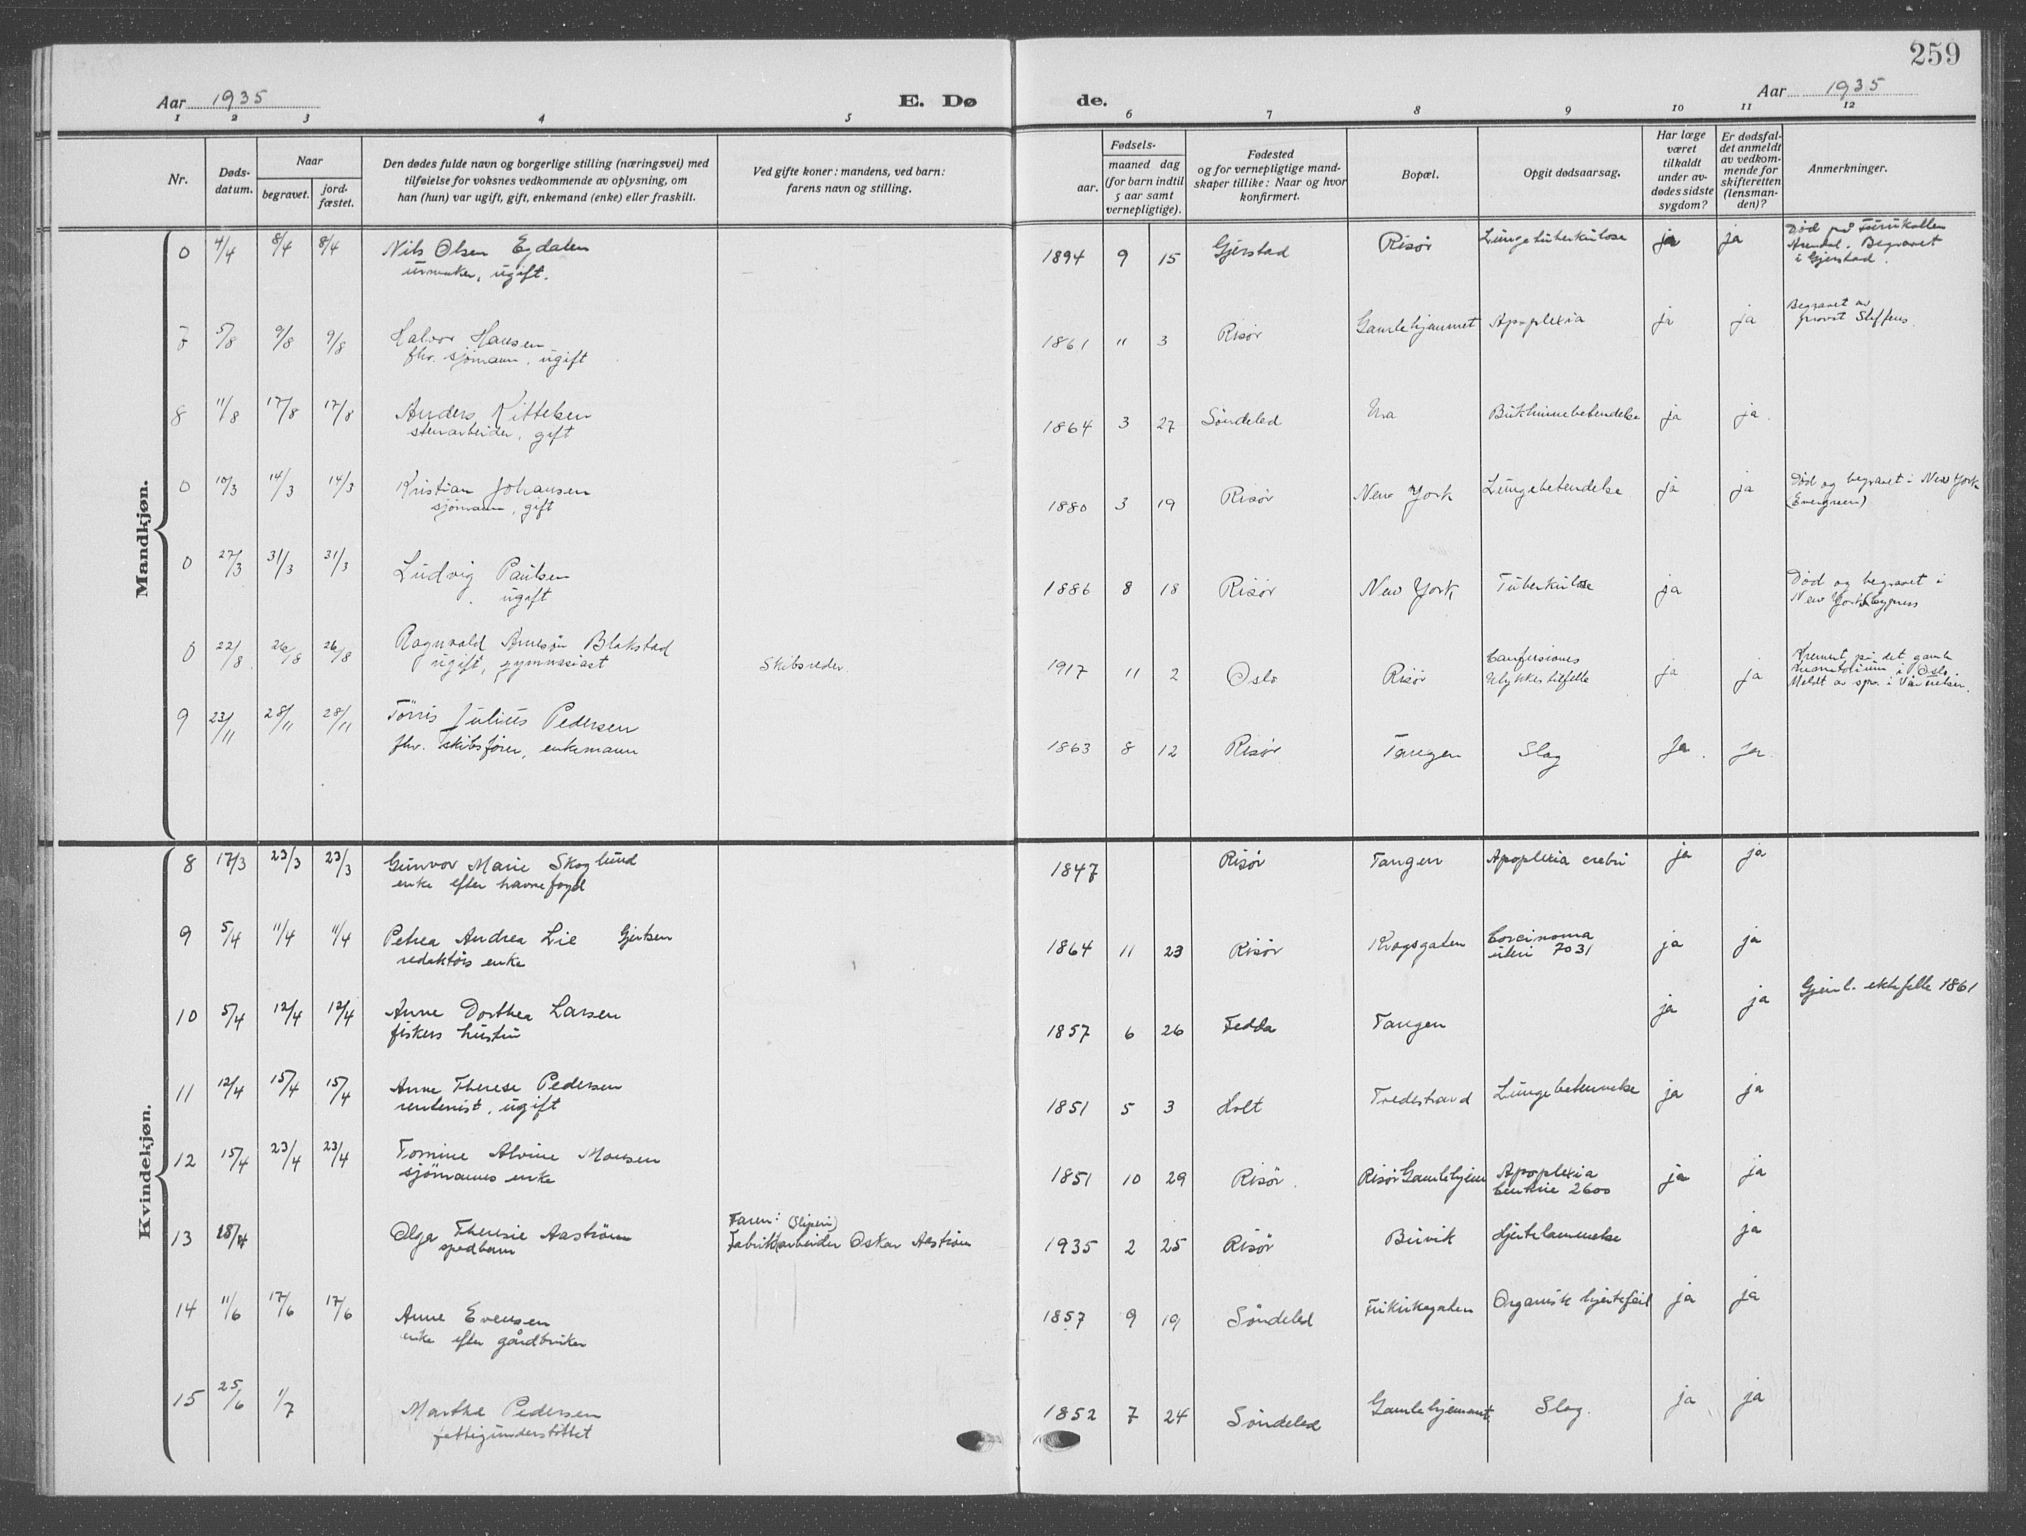 259
Aar 1935 E. Dø de. Aar 1935
1 2 3 4 5 6 7 8 9 10 11 12
Nr.
Døds-
datum.
Naar
begravet.
jord-
fæstet.
Den dødes fulde navn og borgerlige stilling (næringsvei) med
tilføielse for voksnes vedkommende av oplysning, om
han (hun) var ugift, gift, enkemand (enke) eller fraskilt.
Ved gifte koner: mandens, ved barn:
farens navn og stilling.
Fødsels-
aar.
maaned dag
(for barn indtil
5 aar samt
vernepligtige).
Fødested
og for vernepligtige mand-
skaper tillike: Naar og hvor
konfirmert.
Bopæl.
Opgit dødsaarsag.
Har læge
været
tilkaldt
under av-
dødes sidste
sygdom?
Er dødsfal-
det anmeldt
av vedkom-
mende for
skifteretten
(lensman-
den)?
Anmerkninger.
Mandkjøn.
0 4/4 8/4 8/4 Nils Olsen Egdalen 1894 9 15 Gjerstad Risør Lungetuberkulose ja ja
urmaker, ugift.
Død på
Arendal. Begravet
i Gjerstad.
7 5/8 9/8 9/8 Halvor Hansen 1861 " 3 Risør Gamlehjemmet Apoplexia ja ja
fhv. sjømann, ugift
Begravet av
provst Steffens.
8 11/8 17/8 17/8 Anders Kittelsen 1864 3 27 Søndeled Ura Bukhinnebetendelse ja ja
stenarbeider, gift
0 10/3 14/3 14/3 Kristian Johansen 1880 3 19 Risør New York Lungebetendelse ja ja
sjømann, gift
Død og begravet i New York
(Evergreen)
0 27/3 31/3 31/3 Ludvig Paulsen 1886 8 18 Risør New York Tuberkulose ja
ugift
Død og begravet i
New York
0 22/8 26/8 26/8 Ragnvald Arnesøn Blakstad Skibsreder. 1917 11 2 Oslo Risør ja ja
ugift, gymnasiast
Ulykkestilfelle
Kremert på det gamle
i Oslo
Meldt av
9 23/11 28/11 28/11 Tørris Julius Pedersen 1863 8 12 Risør Tangen Slag Ja. Ja.
fhv. skibsfører, enkemann
Kvindekjøn.
8 17/3 23/3 23/3 Gunvor Marie Skoglund 1847 Risør Tangen Apoplexia crebri ja ja
enke efter havnefogd
9 5/4 11/4 11/4 Petrea Andrea Lie Gjertsen 1864 11 23 Risør Kragsgaten Corcinoma ja ja
redaktørs enke
uteri 7031
10 5/4 12/4 12/4 Anne Dorthea Larsen 1857 6 26 Fedda Tangen ja ja Gjenl. ektefelle 1861
fiskers hustru
11 12/4 15/4 15/4 Anne Therese Pedersen 1851 5 3 Holt Tvedestrand Lungebetennelse ja ja
rentenist, ugift
12 15/4 23/4 23/4 Tomine Alvine Monsen 1851 10 29 Risør. Risør Gamlehjem Apoplexia ja ja
sjømanns enke
2600
13 18/4 Olga Theresie Aastrøm Faren: (Sliperi) 1935 2 25 Risør Buvik Hjertelammelse ja
spedbarn
Fabrikkarbeider Oskar Aastrøm
14 11/6 17/6 17/6 Anne Evensen 1857 9 19 Søndeled Frikirkegaten Organisk hjertefeil ja ja
enke efter gårdbruker
15 25/6 1/7 Marthe Pedersen 1852 7 24 Søndeled Gamlehjemmet Slag. ja ja
fattigunderstøttet